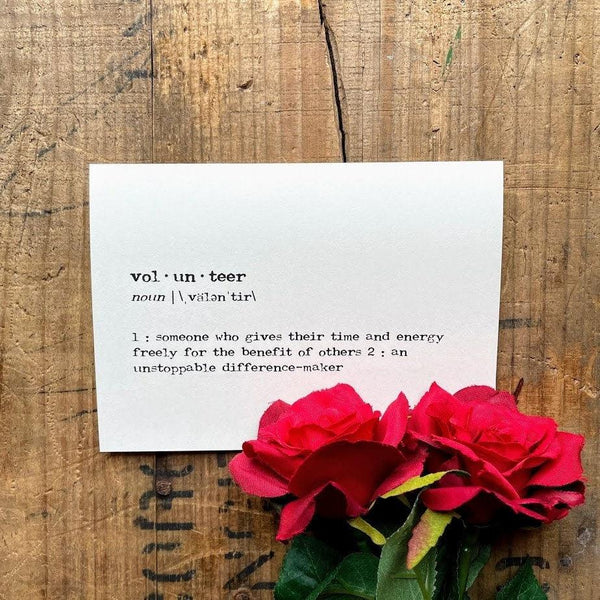 vol · un · teer
noun | \ˌvälən'tir\
1 : someone who gives their time and energy
freely for the benefit of others 2 : an
unstoppable difference-maker